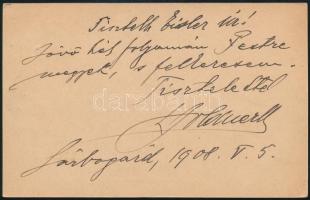 Tisztelt Eisler úr!
Jövő hét folyamán Pestre
megyek, s felkeresem.
Tisztelettel
Sárbogárd, 1908. V. 5.